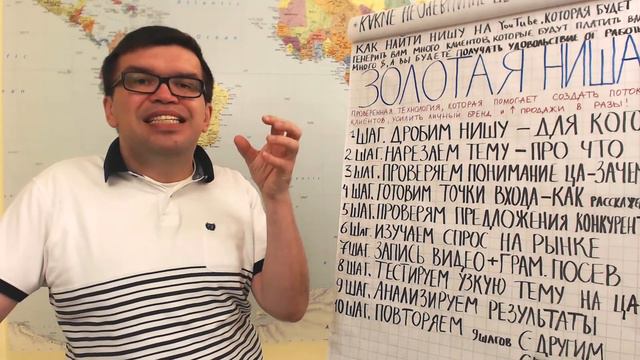 КАК НАЙТИ НИШУ НА YouTube, КОТОРАЯ БУДЕТ
ГЕНЕРИТЬ ВАМ МНОГО КЛИЕНТОВ, КОТОРЫЕ БУДУТ ПЛАТИТЬ ВАМ
МНОГО $, А ВЫ БУДЕТЕ ПОЛУЧАТЬ УДОВОЛЬСТВИЕ ОТ РАБОТ
ЗОЛОТАЯ НИША
ПРОВЕРЕННАЯ ТЕХНОЛОГИЯ, КОТОРАЯ ПОМОГАЕТ СОЗДАТЬ ПОТОК
КЛИЕНТОВ, УСИЛИТЬ ЛИЧНЫЙ БРЕНД И ↑ ПРОДАЖИ В РАЗЫ!
1 ШАГ. ДРОБИМ НИШУ – ДЛЯ КОГО
2 ШАГ. НАРЕЗАЕМ ТЕМУ – ПРО ЧТО
3 ШАГ. ПРОВЕРЯЕМ ПОНИМАНИЕ ЦА – ЗАЧЕМ
4 ШАГ. ГОТОВИМ ТОЧКИ ВХОДА – КАК РАССКАЖЕМ
5 ШАГ. ПРОВЕРЯМ ПРЕДЛОЖЕНИЯ КОНКУРЕНТ
6 ШАГ. ИЗУЧАЕМ СПРОС НА РЫНКЕ
7 ШАГ ЗАПИСЬ ВИДЕО + ГРАМ. ПОСЕВ
8 ШАГ. ТЕСТИРУЕМ УЗКУЮ ТЕМУ НА ЦА
9 ШАГ. АНАЛИЗИРУЕМ РЕЗУЛЬТАТЫ
10 ШАГ. ПОВТОРЯЕМ 9 ШАГОВ С ДРУГИМ